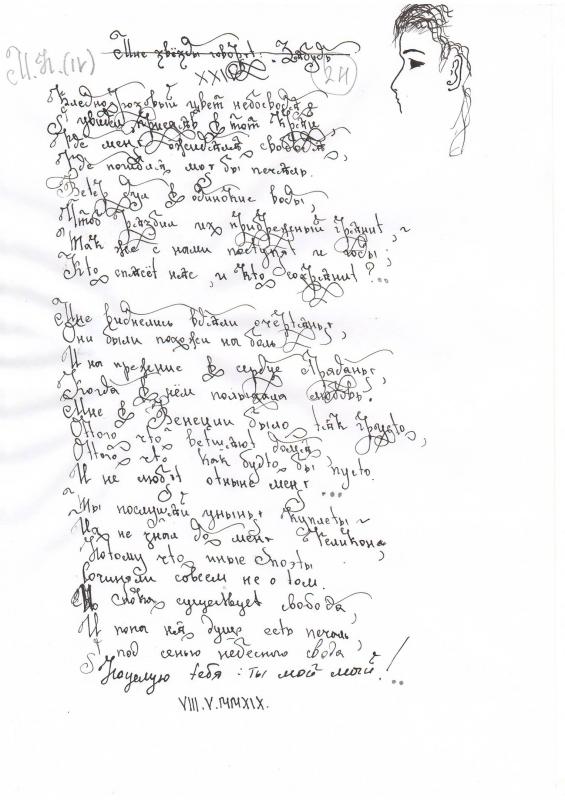 М.К. (IV)
Мне звёзды говорят: "Забудь
XXIV
24
Бледно-розовый цвет небосвода
Я увидел, приехав в тот край,
Где меня ожидала свобода,
Где погибла мог бы печаль.
Ветер дул в одинокие воды,
Чтоб дробили их прибрежный гранит, –
Так же с нами поступят и годы;
Кто спасёт нас, и кто сохранит?...
Мне виднелись вдали очертанья,
Они были похожи на боль
И на прежние в сердце страданья,
Когда в нём полыхала любовь.
Мне в Венеции было так грустно,
Оттого что ветшают дома,
Оттого что как будто бы пусто
И не любят отныне меня
...
Ты послушай унылые куплеты –
Их не знал до меня Геликон,
Потому что иные поэты
Сочиняли совсем не о том.
Но пока существует свобода,
И пока на душе есть печаль,
Я под сенью небесного свода
Поцелую тебя: ты мой
VIII.V.MMXIX.